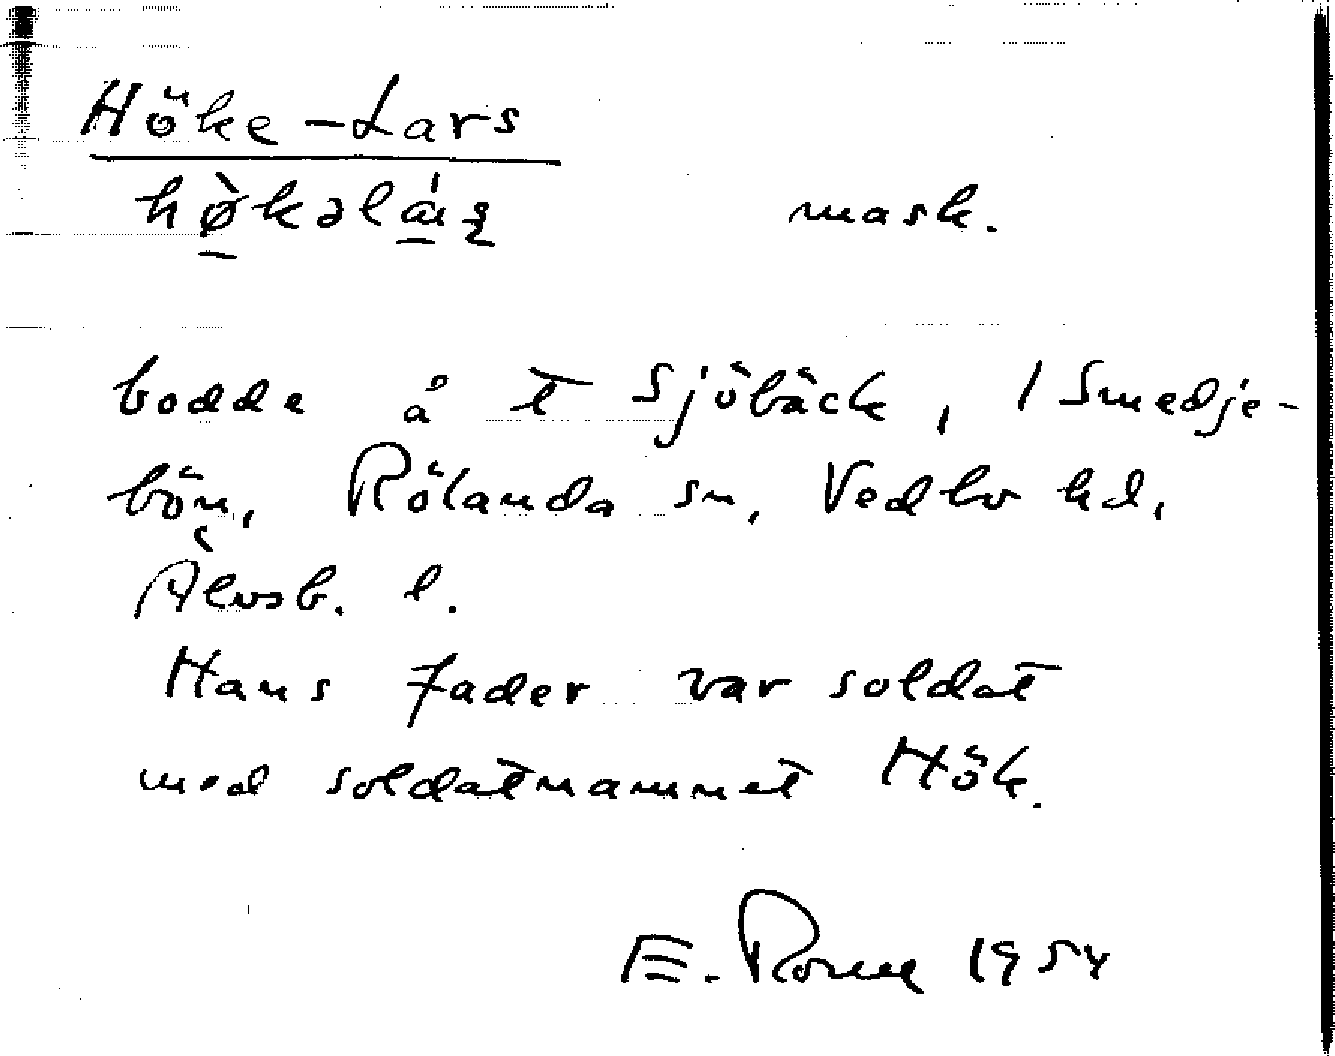 Höke-Lars
mask.
bodde å t Sjöbäck, 1 Smedje-
bön, Rölanda sn, Vedbo hd,
Älvsb. l.
Hans fader var soldat
med soldatnamnet Hök.
E. 1954